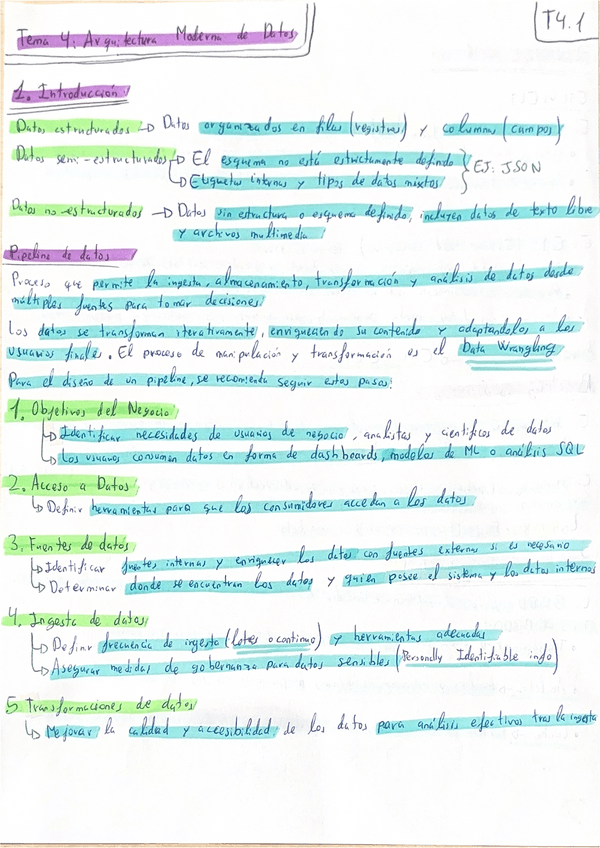 T4.1
Tema 4: Arquitectura Moderna de Datos
1. Introducción
Datos estructurados → Datos organizados en filas (registros) y columnas (campos)
Datos semi-estructurados → El esquema no está estrictamente definido
↳ Etiquetas internas y tipos de datos mixtos } EJ: JSON
Datos no estructurados → Datos sin estructura o esquema definido, incluyen datos de texto libre
y archivos multimedia
Pipeline de datos
Proceso que permite la ingesta, almacenamiento, transformación y análisis de datos desde
múltiples fuentes para tomar decisiones.
Los datos se transforman iterativamente, enriqueciendo su contenido y adaptandolos a los
usuarios finales. El proceso de manipulación y transformación es el Data Wrangling
Para el diseño de un pipeline, se recomienda seguir estos pasos:
1. Objetivos del Negocio
↳ Identificar necesidades de usuarios de negocio, analistas y cientificos de datos
↳ Los usuarios consumen datos en forma de dashboards, modelos de ML o análisis SQL
2. Acceso a Datos
↳ Definir herramientas para que los consumidores accedan a los datos
3. Fuentes de datos
↳ Identificar fuentes internas y enriquecer los datos con fuentes externas si es necesario
↳ Determinar donde se encuentran los datos y quien posee el sistema y los datos internos
4. Ingesta de datos
↳ Definir frecuencia de ingesta (lotes o continuo) y herramientas adecuadas
↳ Asegurar medidas de gobernanza para datos sensibles (Personally Identifiable info)
5. Transformaciones de datos
↳ Mejorar la calidad y accesibilidad de los datos para análisis efectivos tras la ingesta